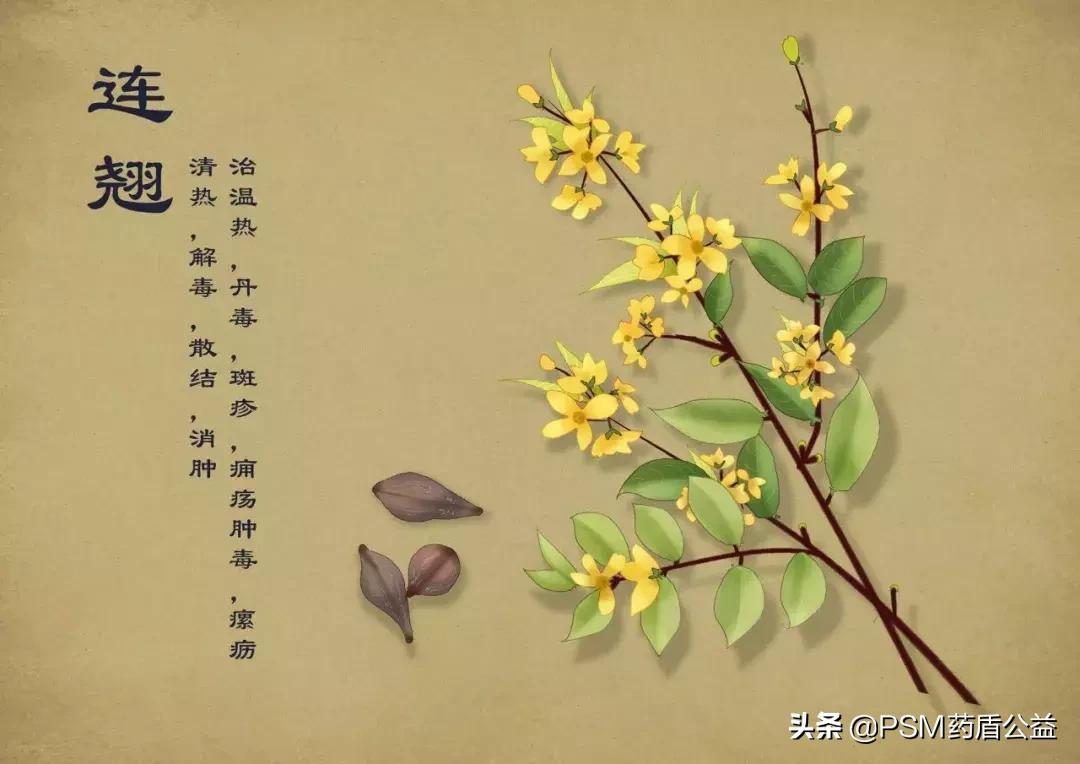 连翘
清热，解毒，散结，消肿
治温热，丹毒，斑疹，痈疡肿毒，瘰疬
头条 @PSM药盾公益